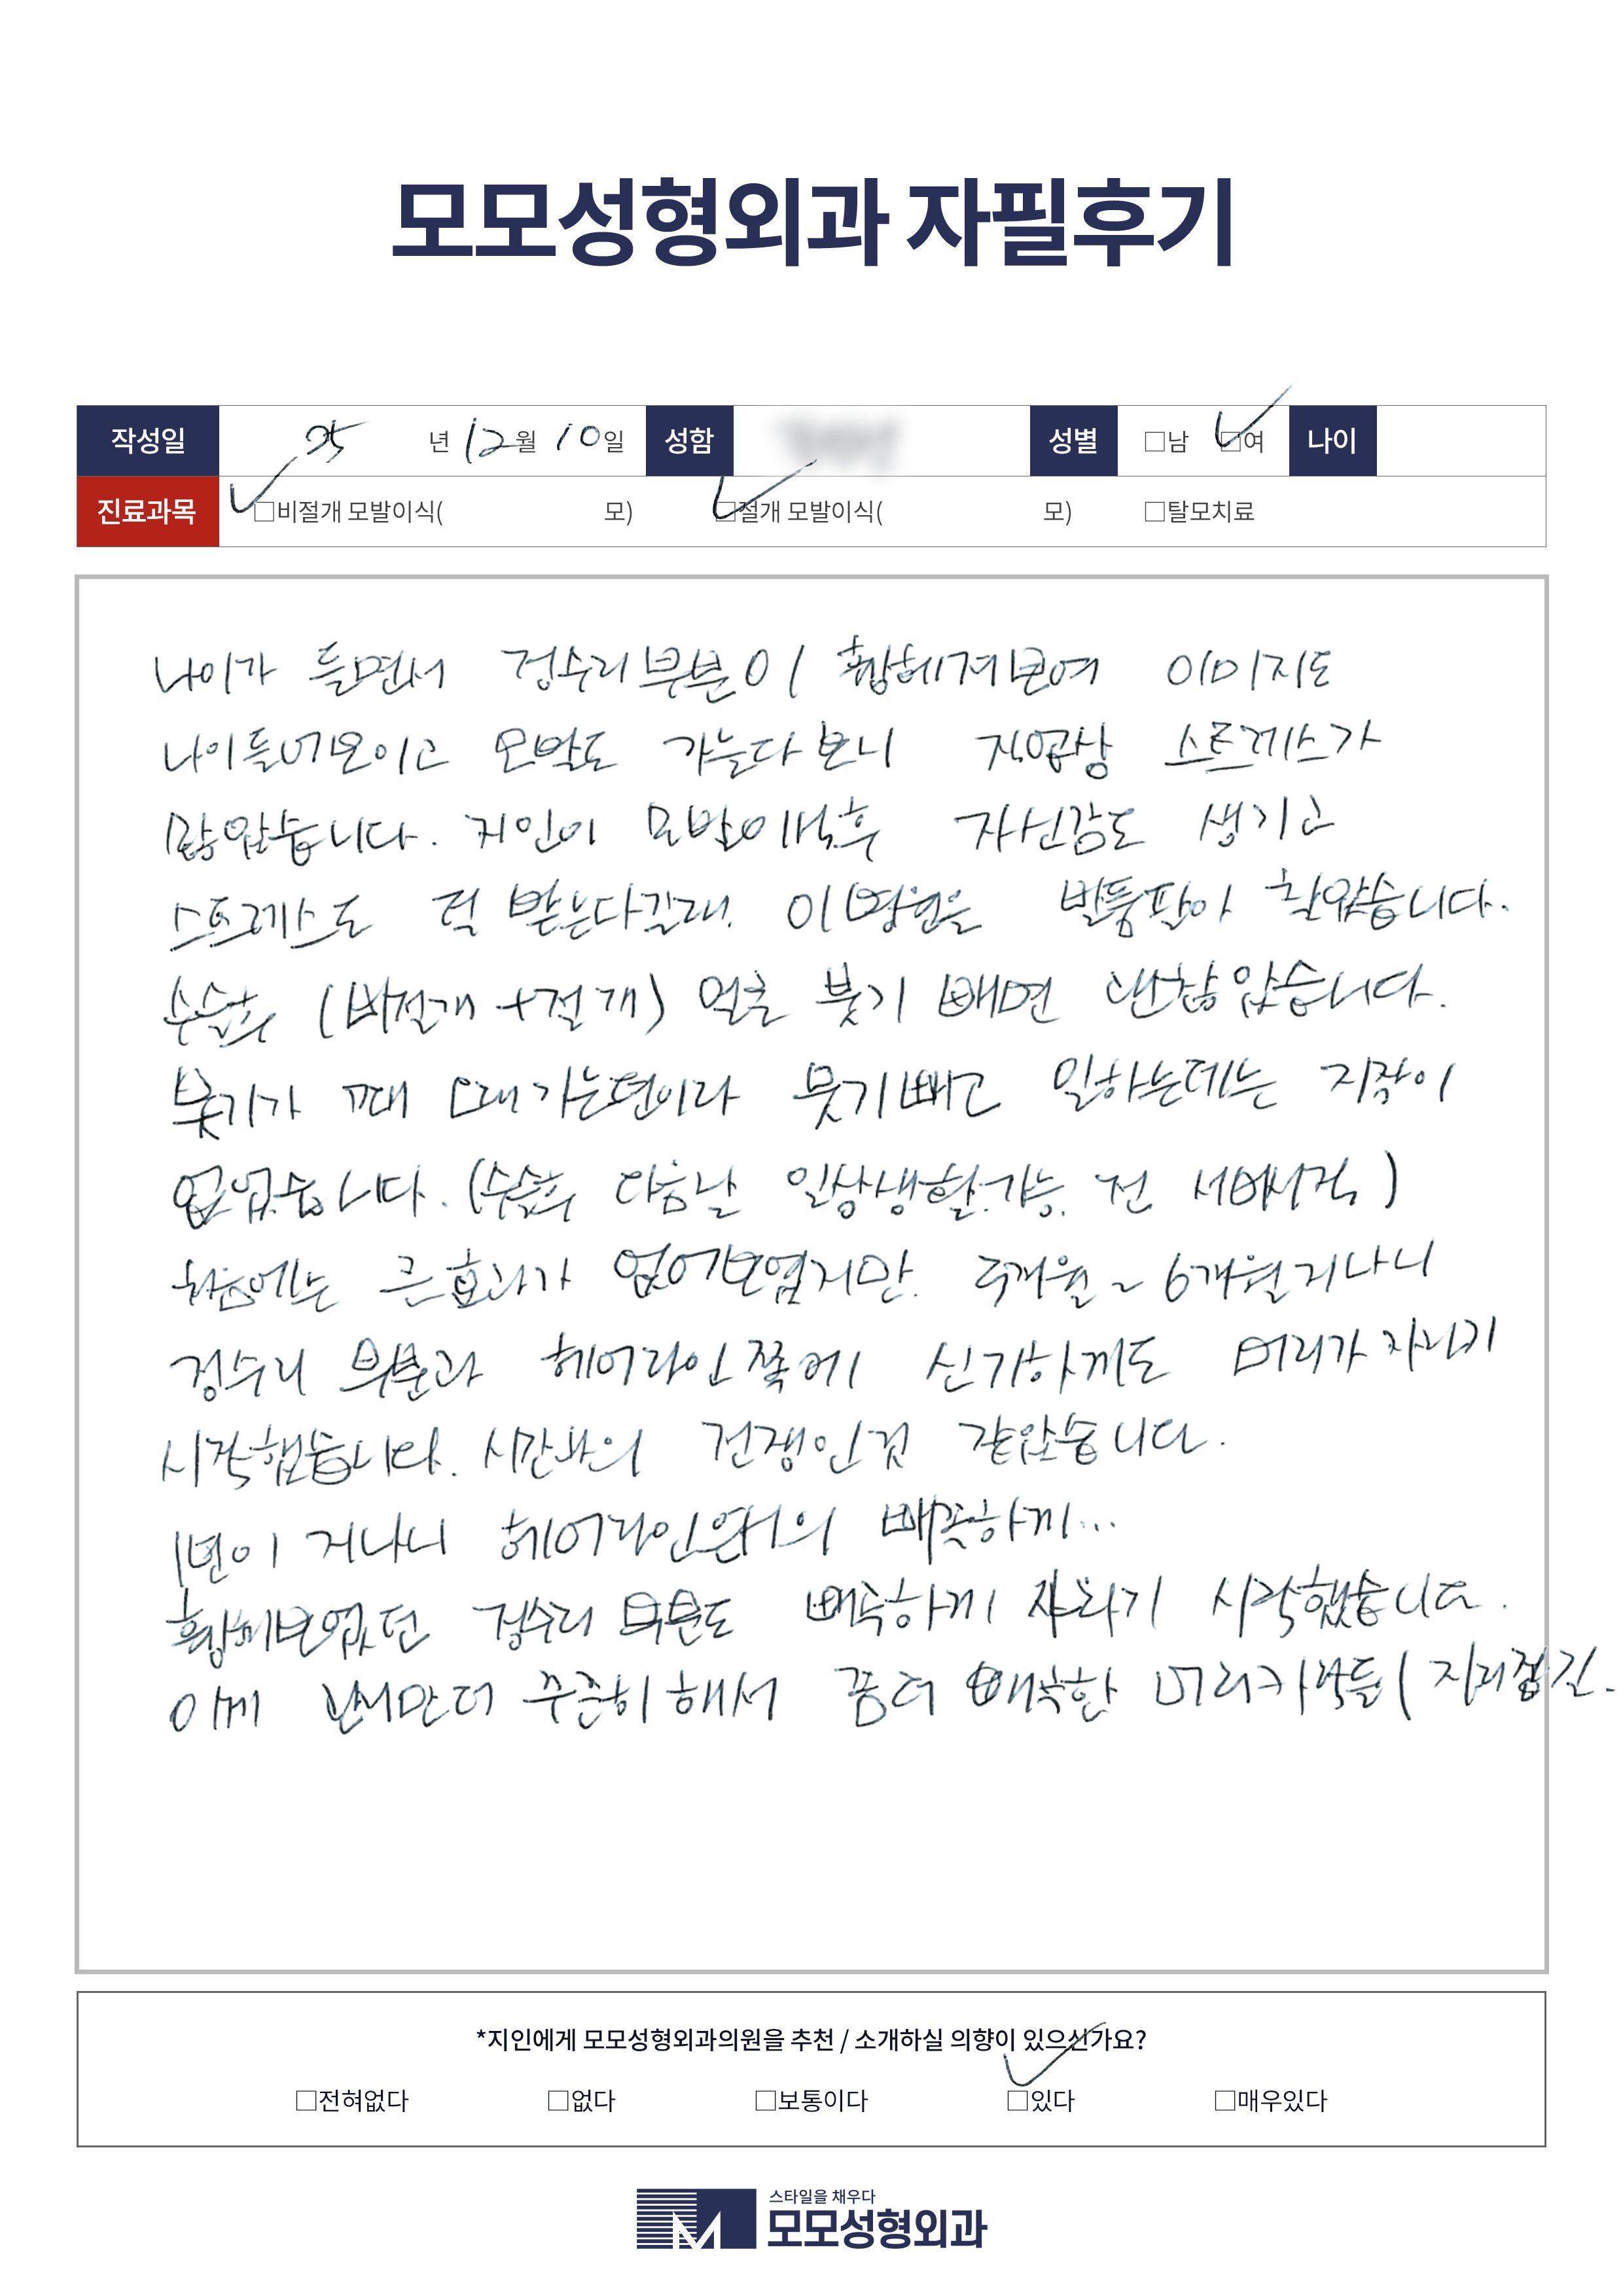 모모성형외과 자필후기
작성일 25 년 12 월 10 일 성함 성별 □남 □여 나이
진료과목 □비절개 모발이식( 모) □절개 모발이식( 모) □탈모치료
나이가 들면서 정수리 부분이 휑해져보여 이미지도
나이들어보이고 모발도 가늘다보니 직업상 스트레스가
많았습니다. 지인이 모발이식후 자신감도 생기고
스트레스도 덜 받는다길래. 이병원을 발품팔아 찾았습니다.
수술후 (비절개+절개) 얼굴 붓기 빼면 괜찮았습니다.
붓기가 때 되면 가는편이라 붓기빼고 일하는데는 지장이
없었습니다. (수술후 다음날 일상생활.가능. 전 서비스직)
처음에는 큰효과가 없어보였지만. 5개월 ~ 6개월 지나니
정수리 부분과 헤어라인쪽에 신기하게도 머리가 자라기
시작했습니다. 시간과의 전쟁인것 같았습니다.
1년이 지나니 헤어라인 빼곡하게...
휑해보였던 정수리 부분도 빼곡하게 자라기 시작했습니다.
이제 만더 꾸준히 해서 좀더 빼곡한 머리카락들이
*지인에게 모모성형외과의원을 추천 / 소개하실 의향이 있으신가요?
□전혀없다 □없다 □보통이다 □있다 □매우있다
스타일을 채우다
모모성형외과